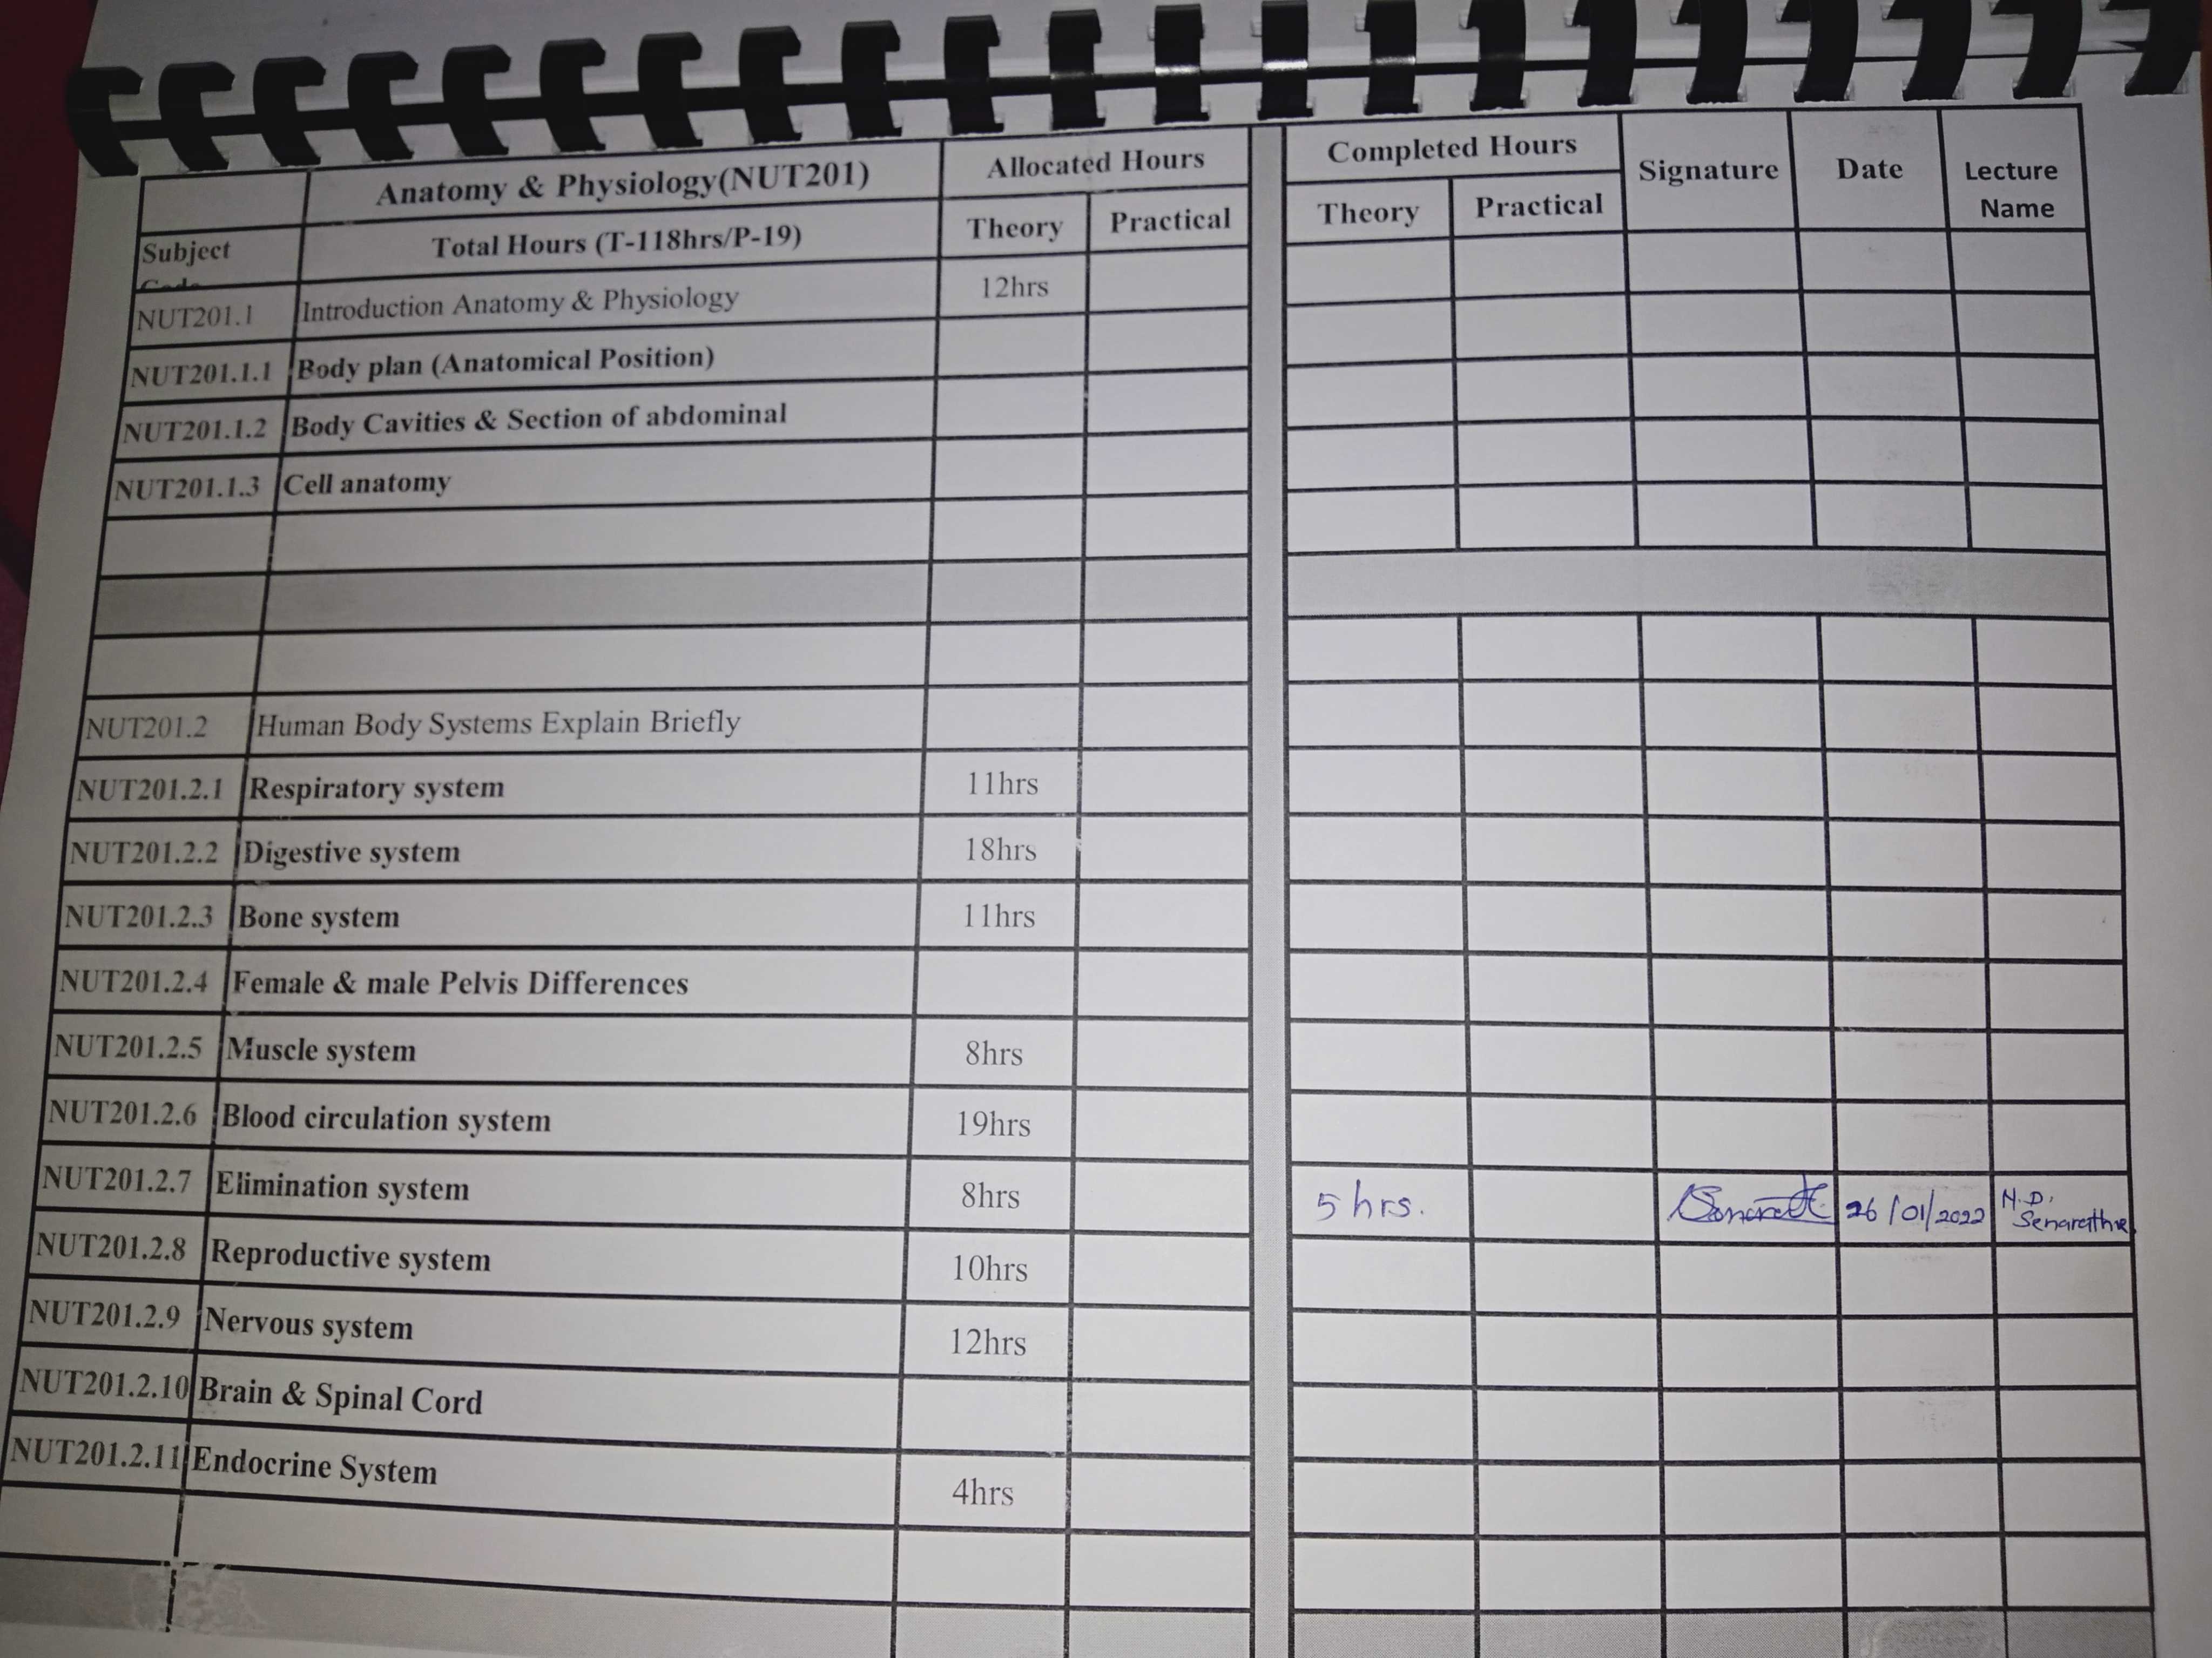 Anatomy & Physiology(NUT201) Allocated Hours Completed Hours Signature Date Lecture Name
Subject Total Hours (T-118hrs/P-19) Theory Practical Theory Practical
NUT201.1 Introduction Anatomy & Physiology 12hrs
NUT201.1.1 Body plan (Anatomical Position)
NUT201.1.2 Body Cavities & Section of abdominal
NUT201.1.3 Cell anatomy
NUT201.2 Human Body Systems Explain Briefly
NUT201.2.1 Respiratory system 11hrs
NUT201.2.2 Digestive system 18hrs
NUT201.2.3 Bone system 11hrs
NUT201.2.4 Female & male Pelvis Differences
NUT201.2.5 Muscle system 8hrs
NUT201.2.6 Blood circulation system 19hrs
NUT201.2.7 Elimination system 8hrs 5 hrs. 26/01/2022 N.D. Senarathne
NUT201.2.8 Reproductive system 10hrs
NUT201.2.9 Nervous system 12hrs
NUT201.2.10 Brain & Spinal Cord
NUT201.2.11 Endocrine System 4hrs